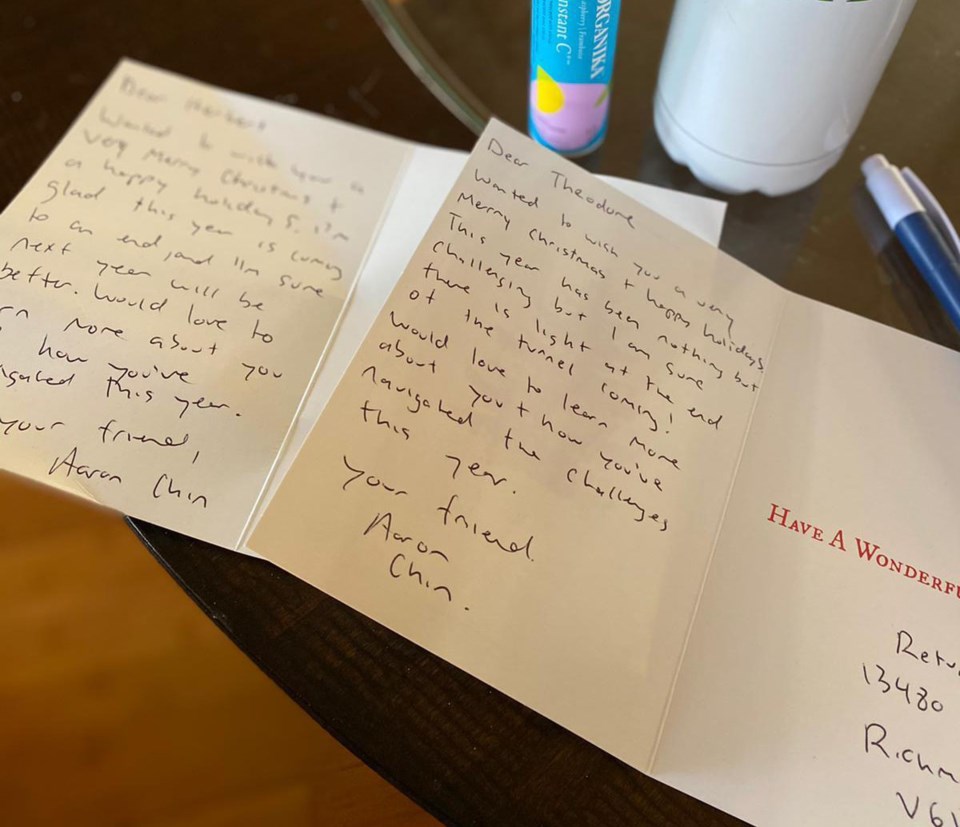 Dear Herbert
Wanted to wish you a
very Merry Christmas +
a happy holidays. I'm
glad this year is coming
to an end, and I'm sure
next year will be
better. Would love to
more about you
how you've
this year.
your friend,
Aaron Chin
Dear Theodore
Wanted to wish you a very
Merry Christmas + happy holidays.
This year has been nothing but
challenging but I am sure
there is light at the end
of the tunnel coming!
Would love to learn more
about you + how you've
navigated the challenges
this year.
your friend.
Aaron
Chin.
HAVE A WONDERFU
Retu
13480
Richm
V6V
ORGANIKA